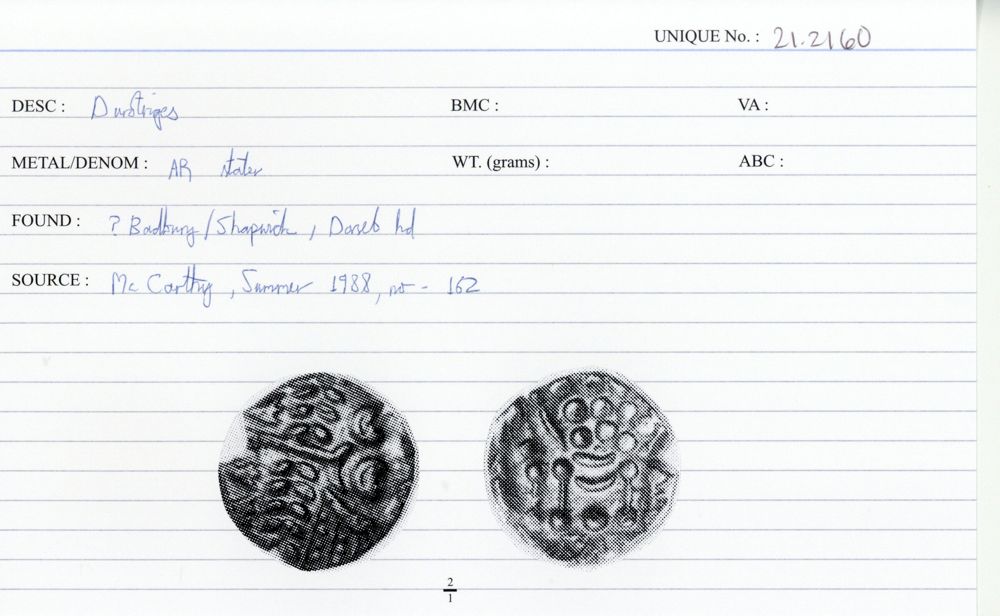 UNIQUE No. : 21.2160
DESC : Durotriges BMC : VA :
METAL/DENOM : AR stater WT. (grams) : ABC :
FOUND : ? Badbury/Shapwick, Dorset hd
SOURCE : McCarthy, Summer 1988, no - 162
2
1